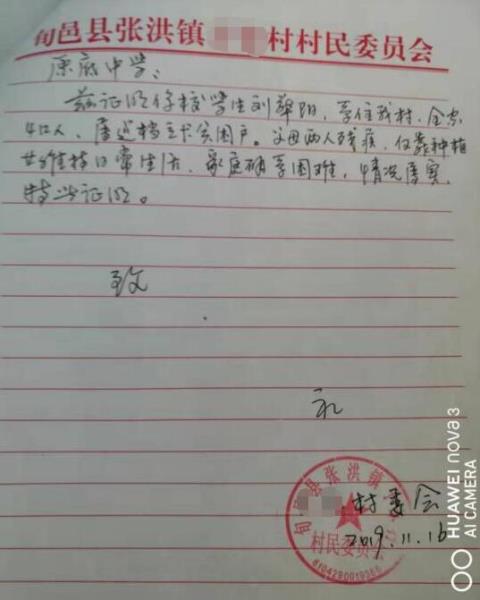 旬邑县张洪镇 村村民委员会
原底中学:
兹证明你校学生刘翠阳,系住我村,全家
4口人,属建档立卡贫困户。父母两人残疾,仅靠种植
业维持日常生活,家庭确系困难,情况属实,
特此证明。
致
礼
旬邑县张洪镇
村民委员会
村委会
2019.11.16
HUAWEI nova 3
AI CAMERA